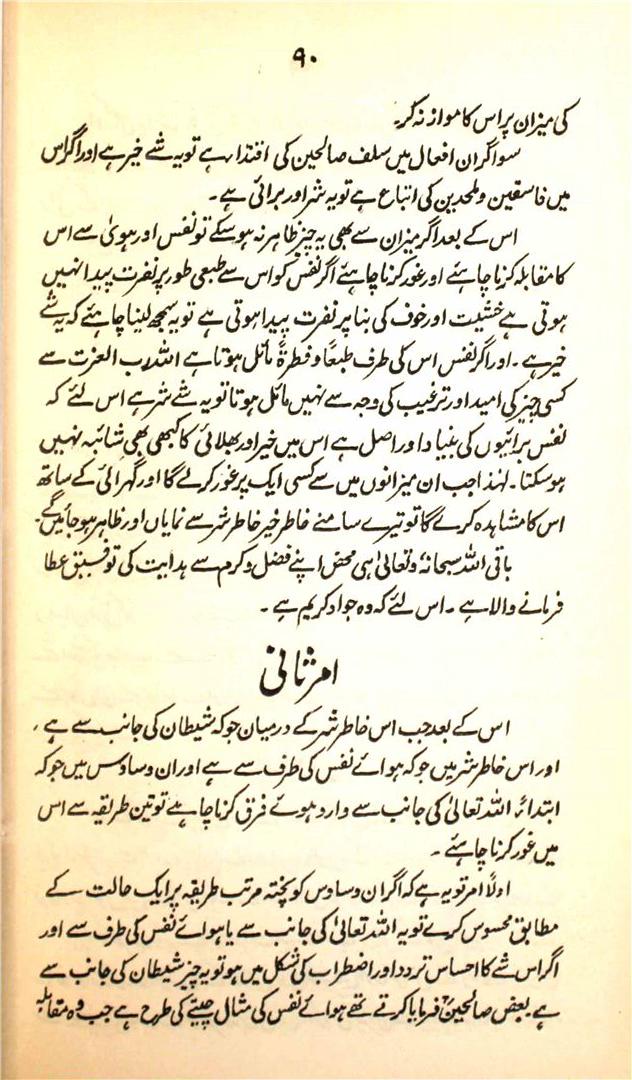 ۹۰
کی میزان پر اس کا موازنہ کر۔
سو اگر ان افعال میں سلف صالحین کی اقتداء ہے تو یہ شے خیر ہے اور اگر اس
میں فاسقین و ملحدین کی اتباع ہے تو یہ شر اور برائی ہے۔
اس کے بعد اگر میزان سے بھی یہ چیز ظاہر نہ ہو سکے تو نفس اور ہویٰ سے اس
کا مقابلہ کرنا چاہئے اور غور کرنا چاہئے اگر نفس کو اس سے طبعی طور پر نفرت پیدا نہیں
ہوتی ہے خشیت اور خوف کی بنا پر نفرت پیدا ہوتی ہے تو یہ سمجھ لینا چاہئے کہ یہ شے
خیر ہے۔ اور اگر نفس اس کی طرف طبعاً و فطرۃً مائل ہوتا ہے اللہ رب العزت سے
کسی چیز کی امید اور ترغیب کی وجہ سے نہیں مائل ہوتا تو یہ شے شر ہے اس لئے کہ
نفس برائیوں کی بنیاد اور اصل ہے اس میں خیر اور بھلائی کا کبھی بھی شائبہ نہیں
ہو سکتا۔ لہٰذا جب ان میزانوں میں سے کسی ایک پر غور کرلے گا اور گہرائی کے ساتھ
اس کا مشاہدہ کرلے گا تو تیرے سامنے خاطر خیر خاطر شر سے نمایاں اور ظاہر ہو جائیں گے۔
باقی اللہ سبحانہٗ وتعالیٰ ہی محض اپنے فضل و کرم سے ہدایت کی توفیق عطا
فرمانے والا ہے۔ اس لئے کہ وہ جواد کریم ہے۔
امر ثانی
اس کے بعد جب اس خاطر شر کے درمیان جو کہ شیطان کی جانب سے ہے،
اور اس خاطر شر میں جو کہ ہوائے نفس کی طرف سے ہے اور ان وساوس میں جو کہ
ابتداءً اللہ تعالیٰ کی جانب سے وارد ہوئے فرق کرنا چاہے تو تین طریقہ سے اس
میں غور کرنا چاہئے۔
اولاً امر تو یہ ہے کہ اگر ان وساوس کو پختہ مرتب طریقہ پر ایک حالت کے
مطابق محسوس کرے تو یہ اللہ تعالیٰ کی جانب سے یا ہوائے نفس کی طرف سے اور
اگر اس شے کا احساس تردد اور اضطراب کی شکل میں ہو تو یہ چیز شیطان کی جانب سے
ہے بعض صالحینؒ فرمایا کرتے تھے ہوائے نفس کی مثال چیتے کی طرح ہے جب وہ مقابلہ